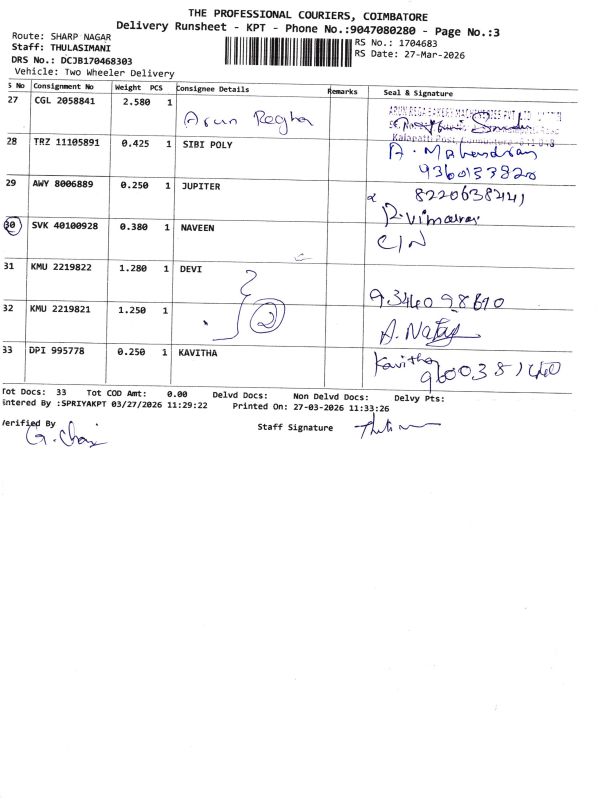 THE PROFESSIONAL COURIERS, COIMBATORE
Delivery Runsheet - KPT - Phone No.:9047080280 - Page No.:3
Route: SHARP NAGAR
RS No.: 1704683
Staff: THULASIMANI
RS Date: 27-Mar-2026
DRS No.: DCJB170468303
Vehicle: Two Wheeler Delivery
S No Consignment No Weight PCS Consignee Details Remarks Seal & Signature
27 CGL 2058841 2.580 1 Arun Regha
28 TRZ 11105891 0.425 1 SIBI POLY A. Mahendiran
9360133820
29 AWY 8006889 0.250 1 JUPITER 8220638441
30 SVK 40100928 0.380 1 NAVEEN C/N
31 KMU 2219822 1.280 1 DEVI
2
32 KMU 2219821 1.250 1
33 DPI 995778 0.250 1 KAVITHA Kavitha
Tot Docs: 33 Tot COD Amt: 0.00 Delvd Docs: Non Delvd Docs: Delvy Pts:
Entered By :SPRIYAKPT 03/27/2026 11:29:22 Printed On: 27-03-2026 11:33:26
Verified By Staff Signature